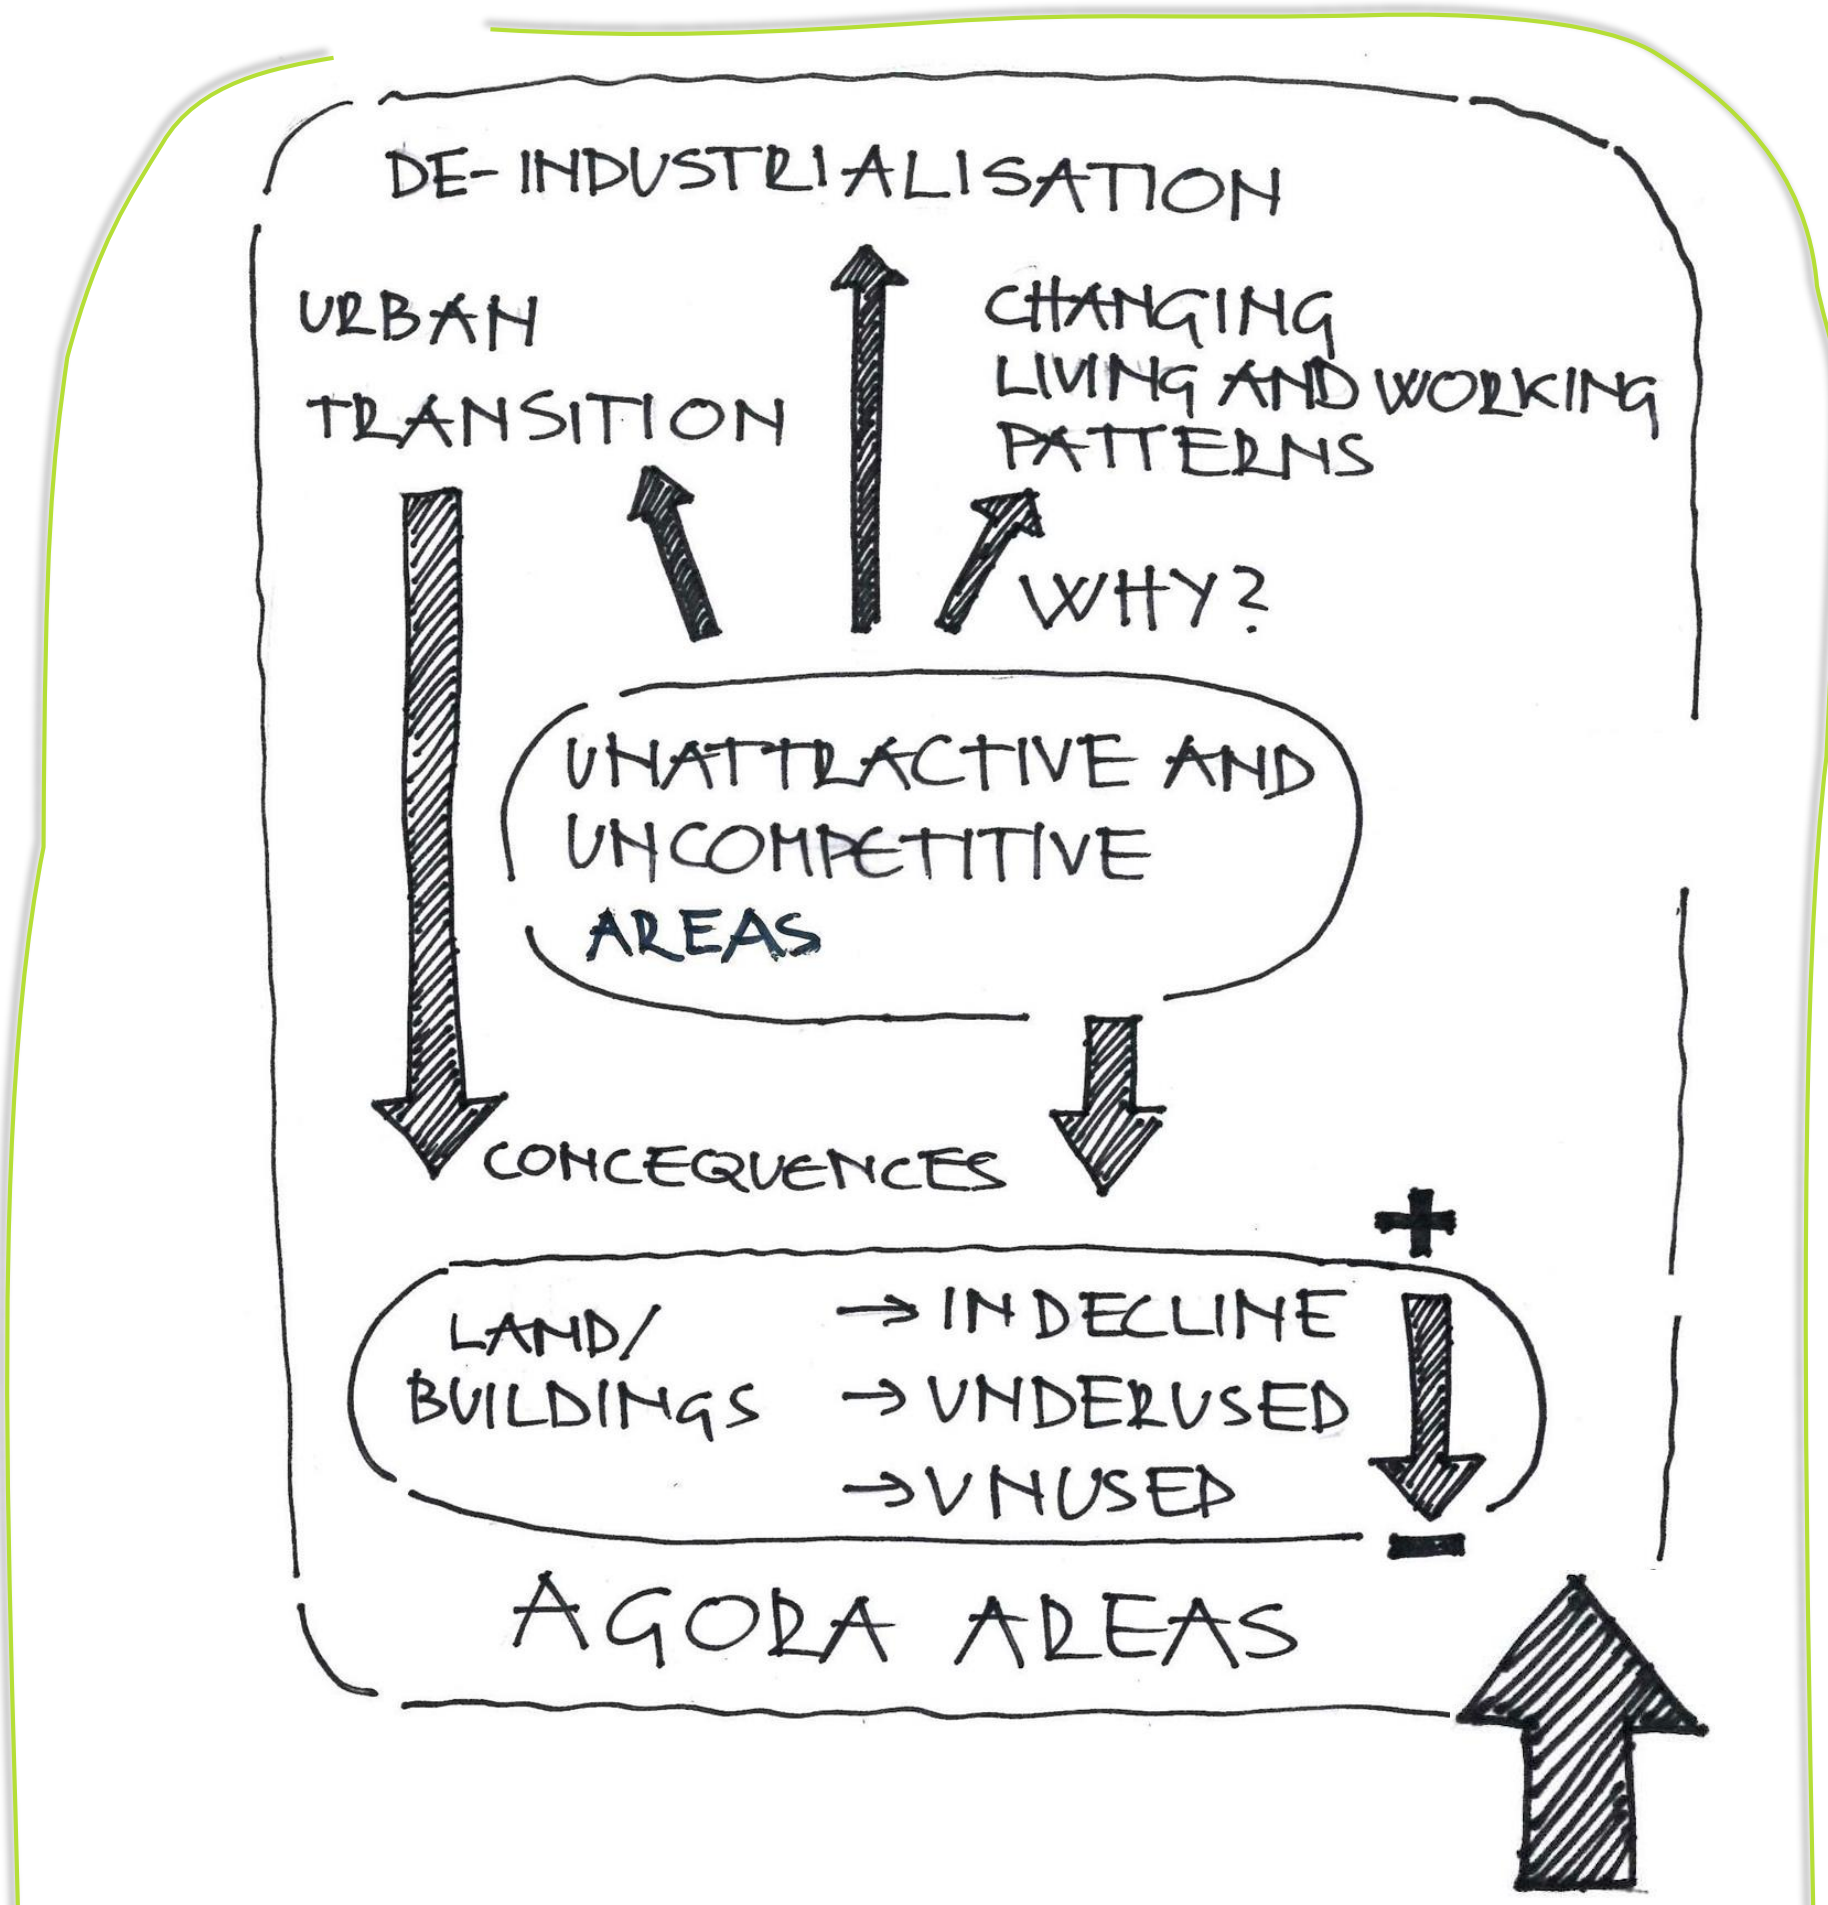 DE-INDUSTRIALISATION
URBAN
TRANSITION
CHANGING
LIVING AND WORKING
PATTERNS
WHY?
UNATTRACTIVE AND
UNCOMPETITIVE
AREAS
CONCEQUENCES
+
LAND/
BUILDINGS
→ IN DECLINE
→ UNDERUSED
→ UNUSED
–
AGORA AREAS